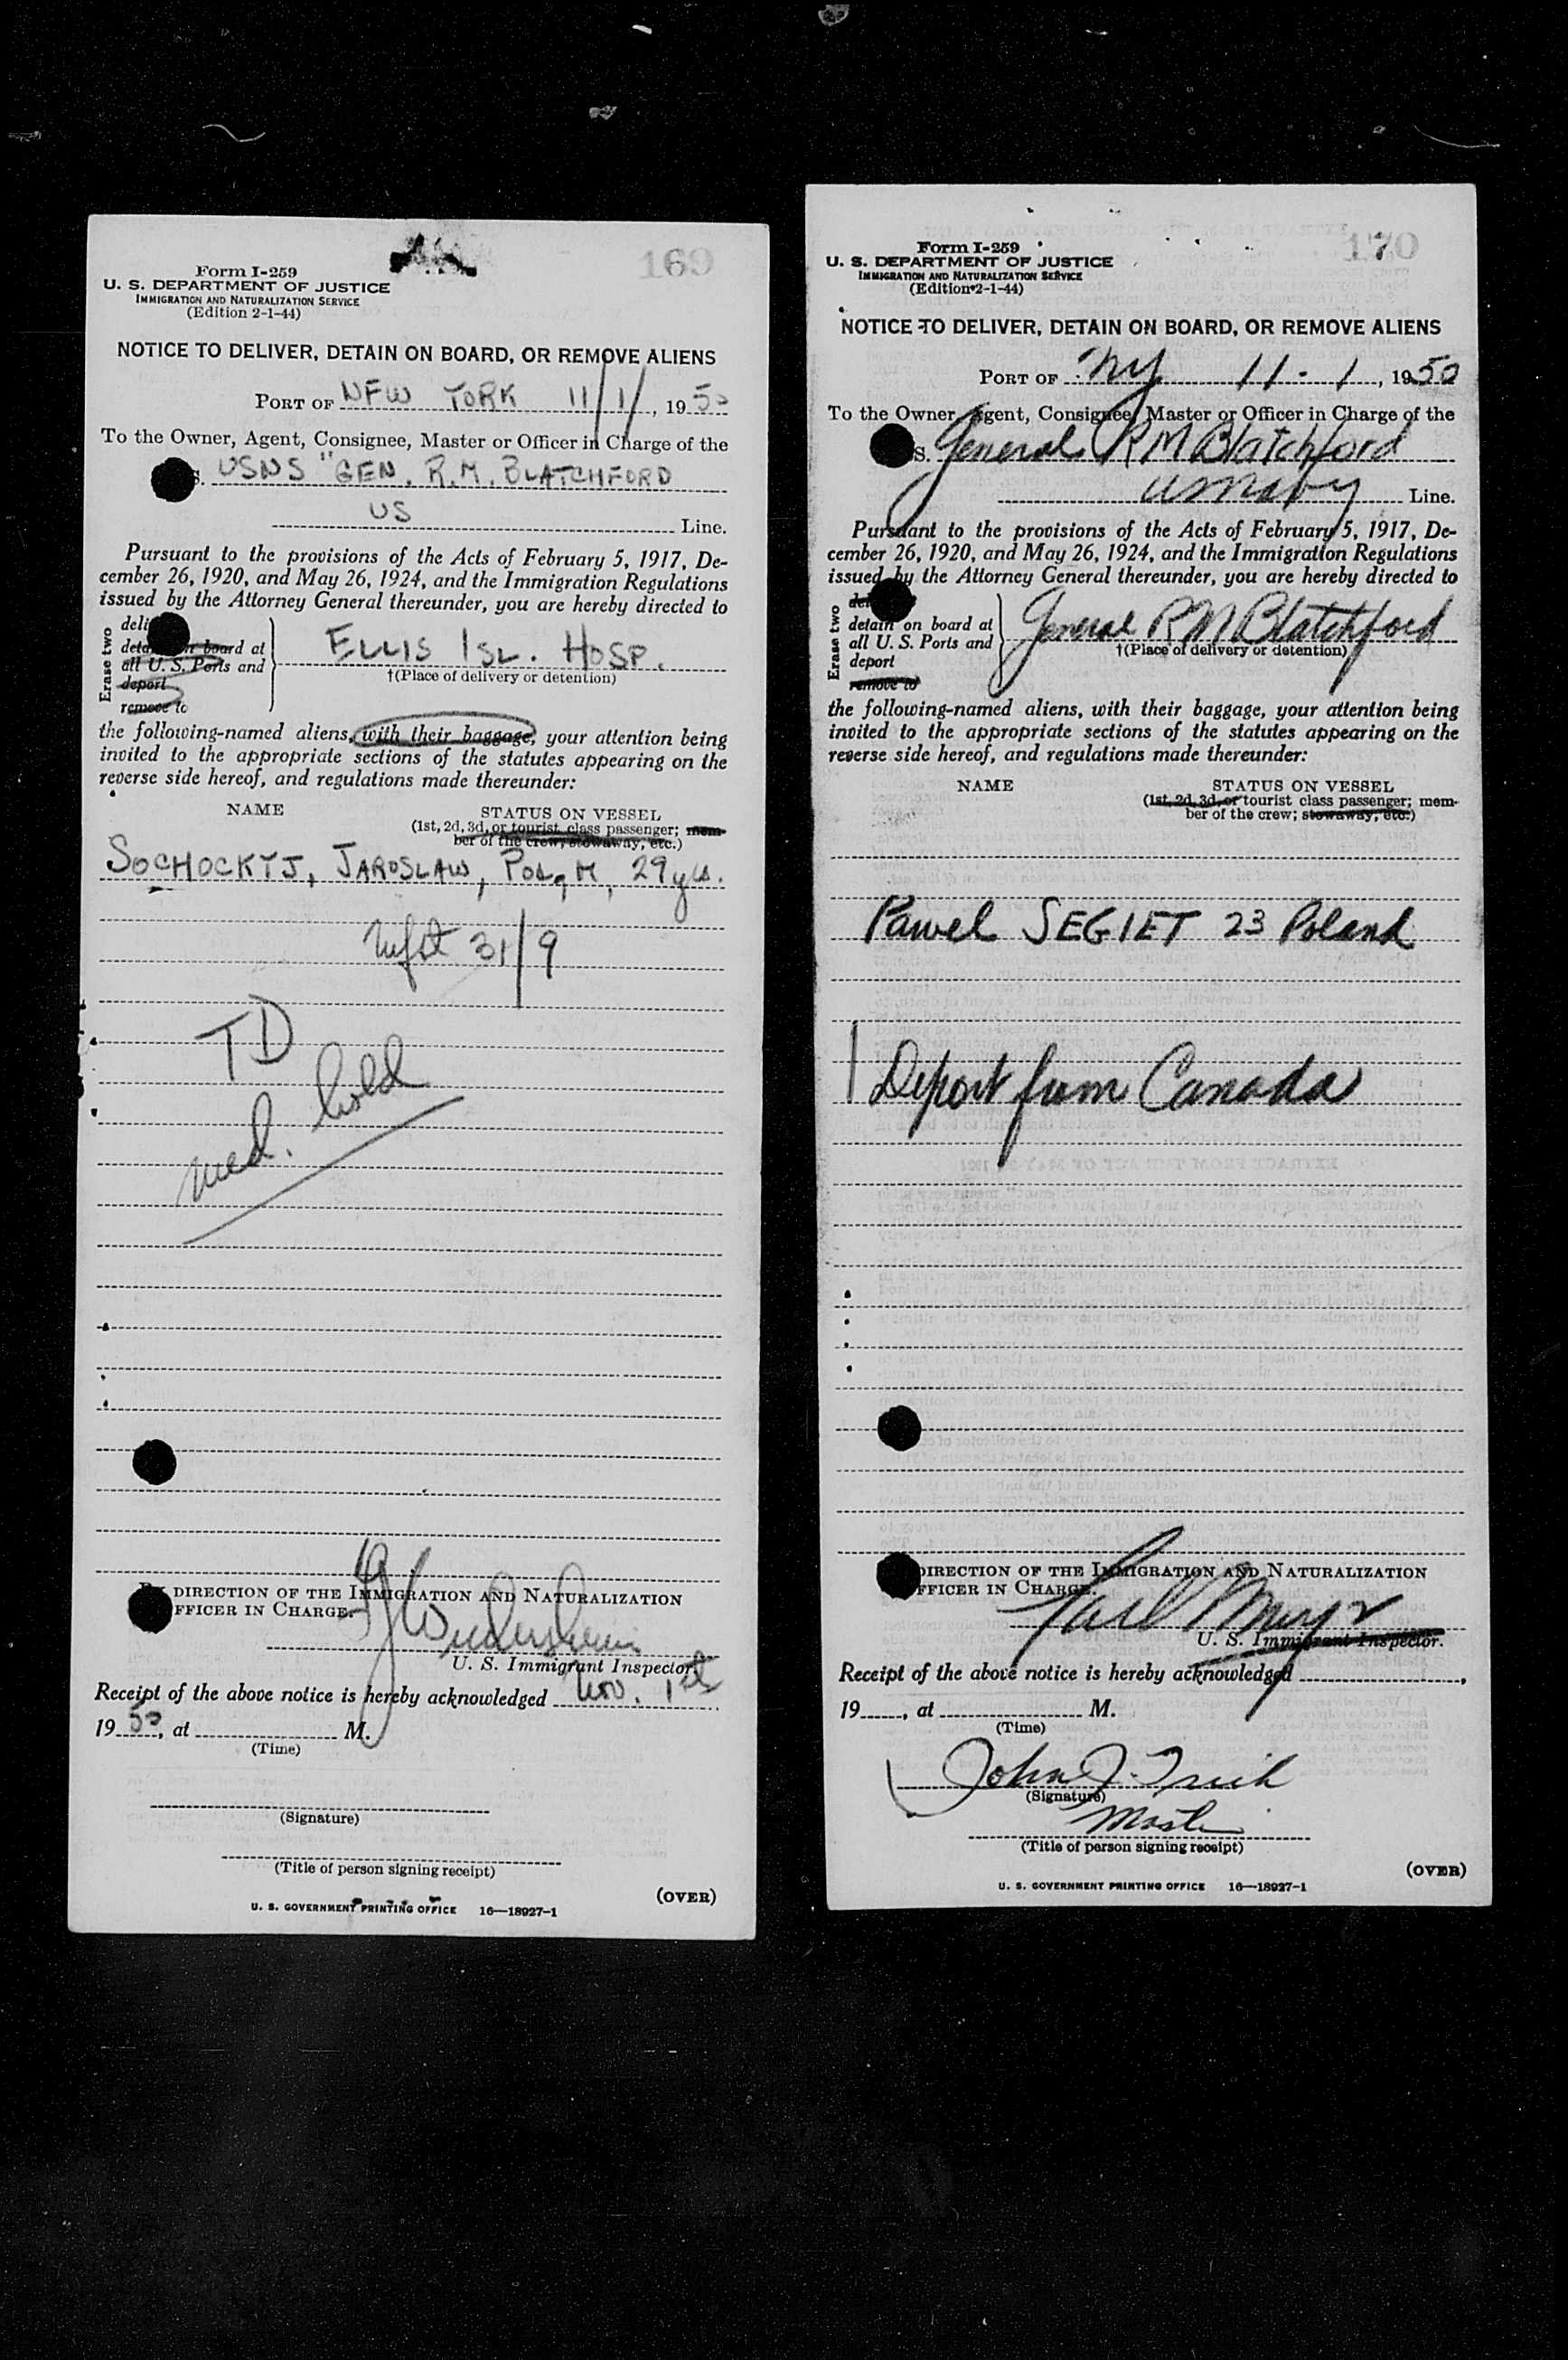 169
Form I-259
U. S. DEPARTMENT OF JUSTICE
IMMIGRATION AND NATURALIZATION SERVICE
(Edition 2-1-44)
NOTICE TO DELIVER, DETAIN ON BOARD, OR REMOVE ALIENS
PORT OF NEW YORK 11/1/, 1950
To the Owner, Agent, Consignee, Master or Officer in Charge of the
S. USNS "GEN. R.M. BLATCHFORD
US Line.
Pursuant to the provisions of the Acts of February 5, 1917, De-
cember 26, 1920, and May 26, 1924, and the Immigration Regulations
issued by the Attorney General thereunder, you are hereby directed to
Erase two
deli
detain on board at
all U. S. Ports and
deport
remove to
ELLIS ISL. HOSP.
†(Place of delivery or detention)
the following-named aliens, with their baggage, your attention being
invited to the appropriate sections of the statutes appearing on the
reverse side hereof, and regulations made thereunder:
NAME STATUS ON VESSEL
(1st, 2d, 3d, or tourist class passenger; mem-
ber of the crew; stowaway, etc.)
SOCHOCKYJ, JAROSLAW, POL, M, 29 yrs.
Mfst 31/9
TD
med. hold
By DIRECTION OF THE IMMIGRATION AND NATURALIZATION
OFFICER IN CHARGE.
U. S. Immigrant Inspector.
Receipt of the above notice is hereby acknowledged Nov. 1st
1950, at M.
(Time)
(Signature)
(Title of person signing receipt)
(OVER)
U. S. GOVERNMENT PRINTING OFFICE 16—18927-1
170
Form I-259
U. S. DEPARTMENT OF JUSTICE
IMMIGRATION AND NATURALIZATION SERVICE
(Edition 2-1-44)
NOTICE TO DELIVER, DETAIN ON BOARD, OR REMOVE ALIENS
PORT OF NY 11-1, 1950
To the Owner, Agent, Consignee, Master or Officer in Charge of the
S. General RM Blatchford
US Navy Line.
Pursuant to the provisions of the Acts of February 5, 1917, De-
cember 26, 1920, and May 26, 1924, and the Immigration Regulations
issued by the Attorney General thereunder, you are hereby directed to
Erase two
del
detain on board at
all U. S. Ports and
deport
remove to
General RM Blatchford
†(Place of delivery or detention)
the following-named aliens, with their baggage, your attention being
invited to the appropriate sections of the statutes appearing on the
reverse side hereof, and regulations made thereunder:
NAME STATUS ON VESSEL
(1st, 2d, 3d, or tourist class passenger; mem-
ber of the crew; stowaway, etc.)
Pawel SEGIET 23 Poland
1 Deport from Canada
DIRECTION OF THE IMMIGRATION AND NATURALIZATION
OFFICER IN CHARGE.
U. S. Immigrant Inspector.
Receipt of the above notice is hereby acknowledged ,
19 , at M.
(Time)
John J.
(Signature)
Master
(Title of person signing receipt)
(OVER)
U. S. GOVERNMENT PRINTING OFFICE 16—18927-1